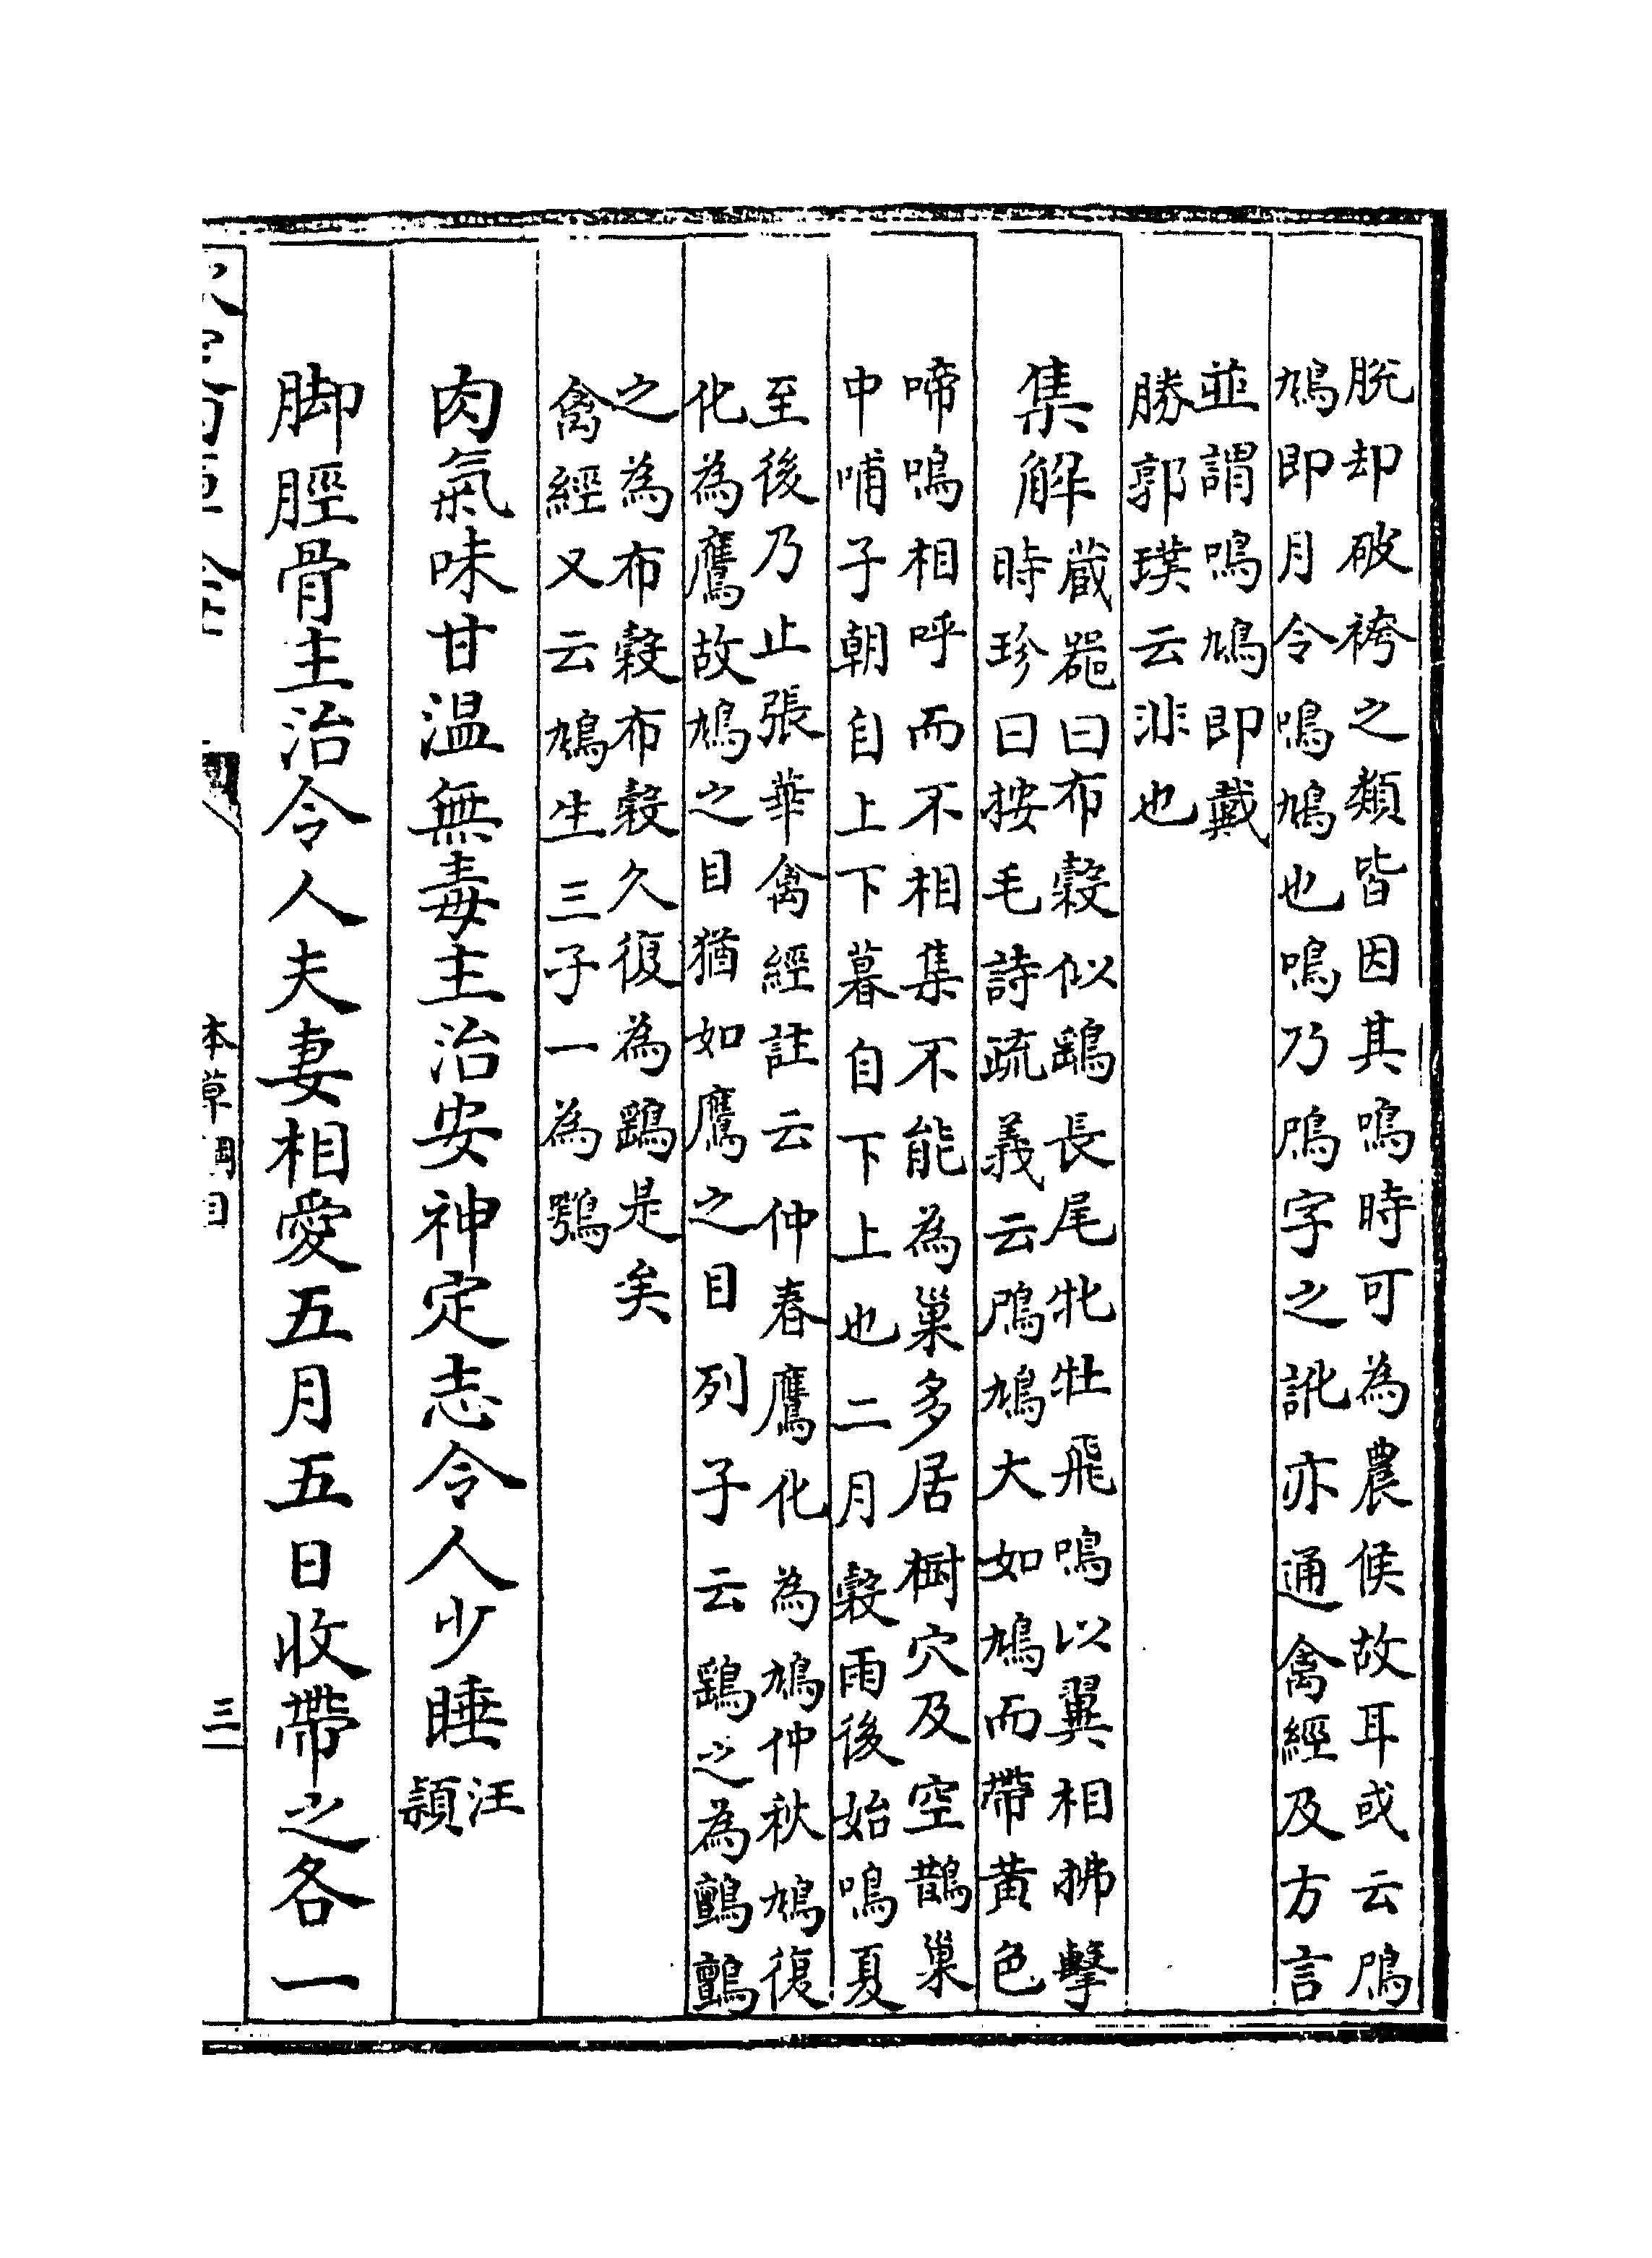 脱却破袴之類皆因其鳴時可為農候故耳或云鳲
鳩即月令鳴鳩也鳴乃鳲字之訛亦通禽經及方言
並謂鳴鳩即戴
勝郭璞云非也
集解藏器曰布穀似鷂長尾牝牡飛鳴以翼相拂擊
時珍曰按毛詩疏義云鳲鳩大如鳩而帶黃色
啼鳴相呼而不相集不能為巢多居樹穴及空鵲巢
中哺子朝自上下暮自下上也二月穀雨後始鳴夏
至後乃止張華禽經註云仲春鷹化為鳩仲秋鳩復
化為鷹故鳩之目猶如鷹之目列子云鷂之為鸇鸇
之為布穀布穀久復為鷂是矣
禽經又云鳩生三子一為鶚
肉氣味甘温無毒主治安神定志令人少睡汪頴
脚脛骨主治令人夫妻相愛五月五日收帶之各一
本草綱目
三